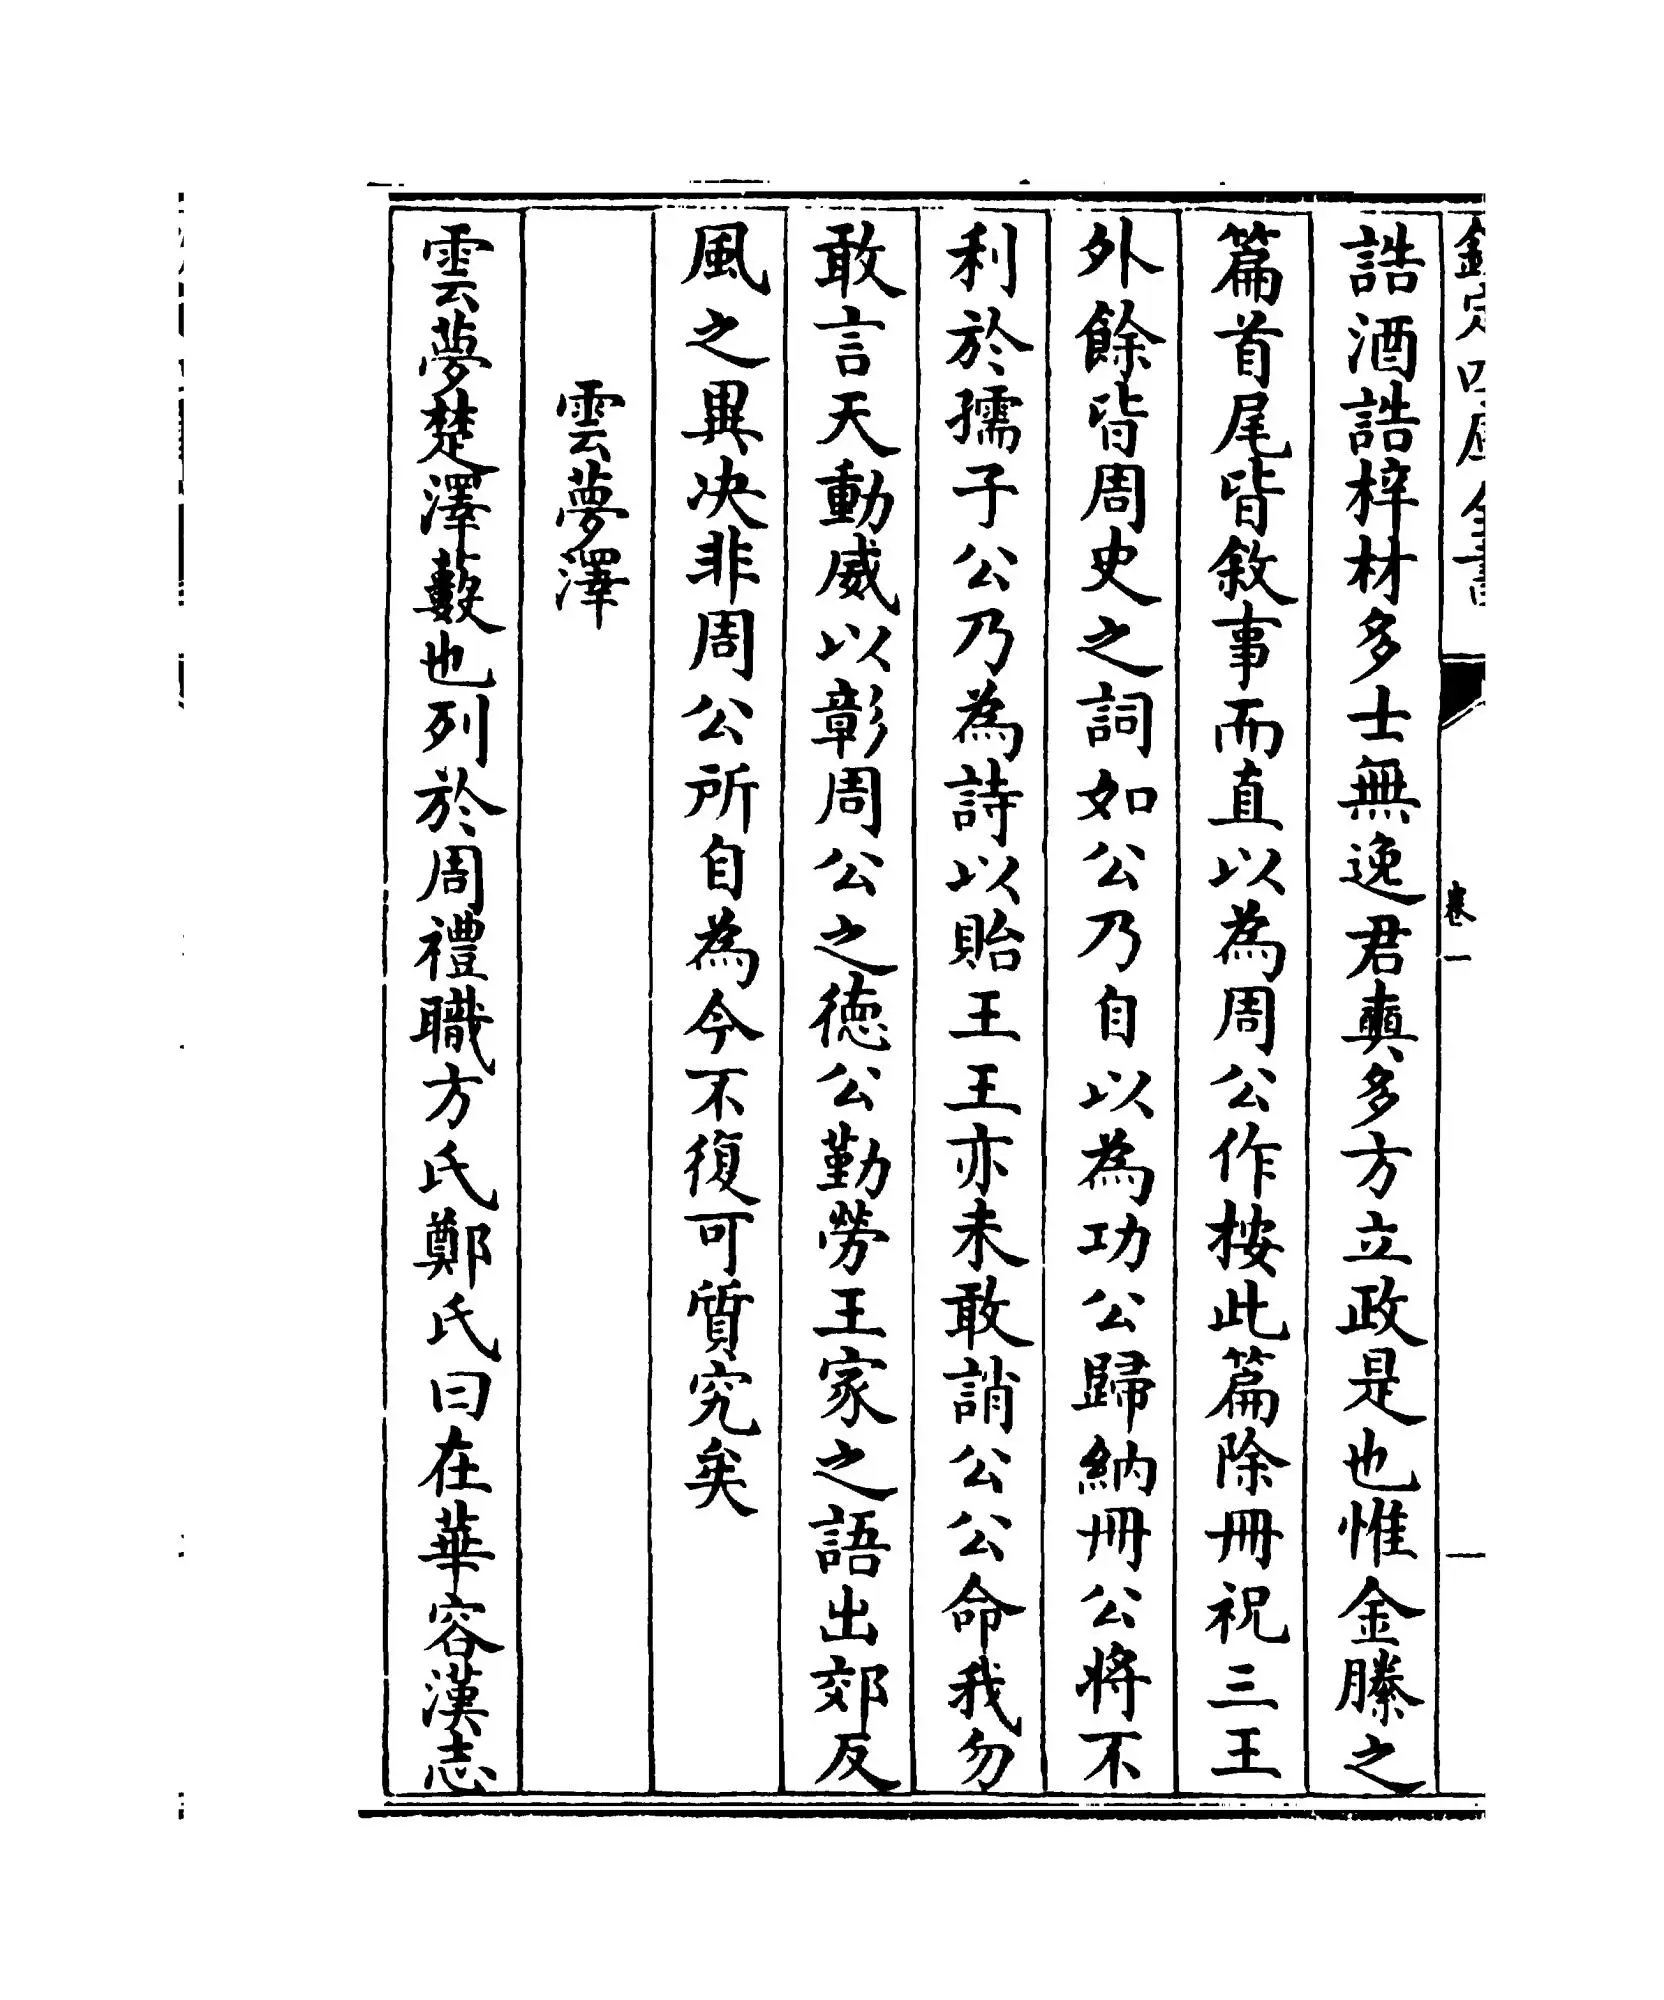 欽定四庫全書
卷一
誥酒誥梓材多士無逸君奭多方立政是也惟金縢之
篇首尾皆敘事而直以為周公作按此篇除冊祝三王
外餘皆周史之詞如公乃自以為功公歸納冊公將不
利於孺子公乃為詩以貽王王亦未敢誚公公命我勿
敢言天動威以彰周公之徳公勤勞王家之語出郊反
風之異决非周公所自為今不復可質究矣
雲夢澤
雲夢楚澤藪也列於周禮職方氏鄭氏曰在華容漢志